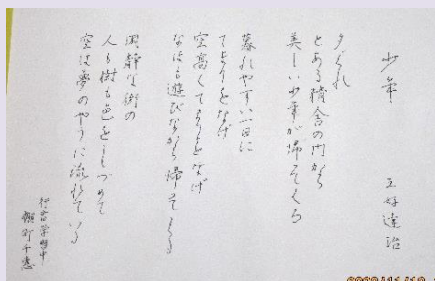 少年
三好達治
夕ぐれ
とある精舎の門から
美しい少年が帰つてくる
暮れやすい一日に
てまりをなげ
空高くてまりをなげ
なほも遊びながら帰つてくる
閑静な街の
人も樹も色をしづめて
空は夢のやうに流れている
行書学習中